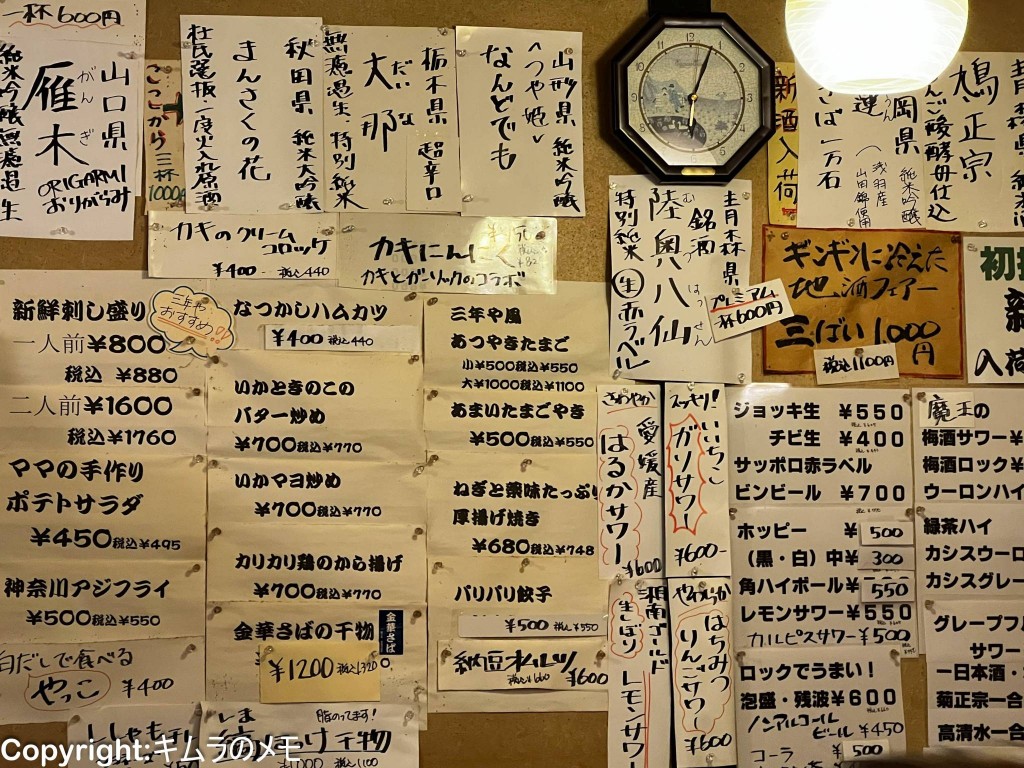 一杯600円
山口県
雁木
がんぎ
ORIGARMI
おりがらみ
純米吟醸無濾過生
ここから三杯
1000
秋田県 純米大吟醸
まんさくの花
杜氏選抜・一度火入れ原酒
栃木県 超辛口
大那
だいな
無濾過生 特別純米
山形県 純米吟醸
へつや姫
なんどでも
新酒入荷
岡県
純米吟醸
浅羽産
山田錦使用
ばい一万石
鳩正宗
んご酸酵母仕込
青森県
銘酒
陸奥八仙
むつ
はっせん
特別純米 生 赤ラベル
プレミアム
一杯600円
ギンギンに冷えた
地酒フェアー
三ばい1,000円
税込1100円
初
新
入荷
カキのクリーム
コロッケ
¥400- 税込440
カキにんにく
カキとガーリックのコラボ
新鮮刺し盛り
三年や
おすすめ!!
一人前¥800
税込 ¥880
二人前¥1600
税込¥1760
ママの手作り
ポテトサラダ
¥450税込¥495
神奈川アジフライ
¥500税込¥550
白だしで食べる
やっこ ¥400
ししゃも
なつかしハムカツ
¥400 税込440
いかときのこの
バター炒め
¥700税込¥770
いかマヨ炒め
¥700税込¥770
カリカリ鶏のから揚げ
¥700税込¥770
金華さばの干物
金華さば
¥1200 税込1,320
脂のってます!
干物
¥1000 税込1,100
三年や風
あつやきたまご
小¥500税込¥550
大¥1000税込¥1100
あまいたまごやき
¥500税込¥550
ねぎと薬味たっぷり
厚揚げ焼き
¥680税込¥748
パリパリ餃子
¥500 税込¥550
納豆オムレツ
税込¥660 ¥600
さわやか
愛媛産
はるかサワー
¥600
スッキリ!
いいちこ
ガリサワー
¥600-
湘南ゴールド
生しぼり
レモンサワー
やわらか
はちみつ
りんごサワー
¥600
ジョッキ生 ¥550
チビ生 ¥400
サッポロ赤ラベル
ビンビール ¥700
ホッピー ¥500
(黒・白)中¥300
角ハイボール¥550
レモンサワー¥550
カルピスサワー¥500
ロックでうまい!
泡盛・残波¥600
ノンアルコール
ビール ¥450
コーラ ¥500
魔王の
梅酒サワー¥
梅酒ロック¥
ウーロンハイ
緑茶ハイ
カシスウーロ
カシスグレー
グレープフル
サワー
一日本酒・
菊正宗一合
高清水一合
Copyright:キムラのメモ